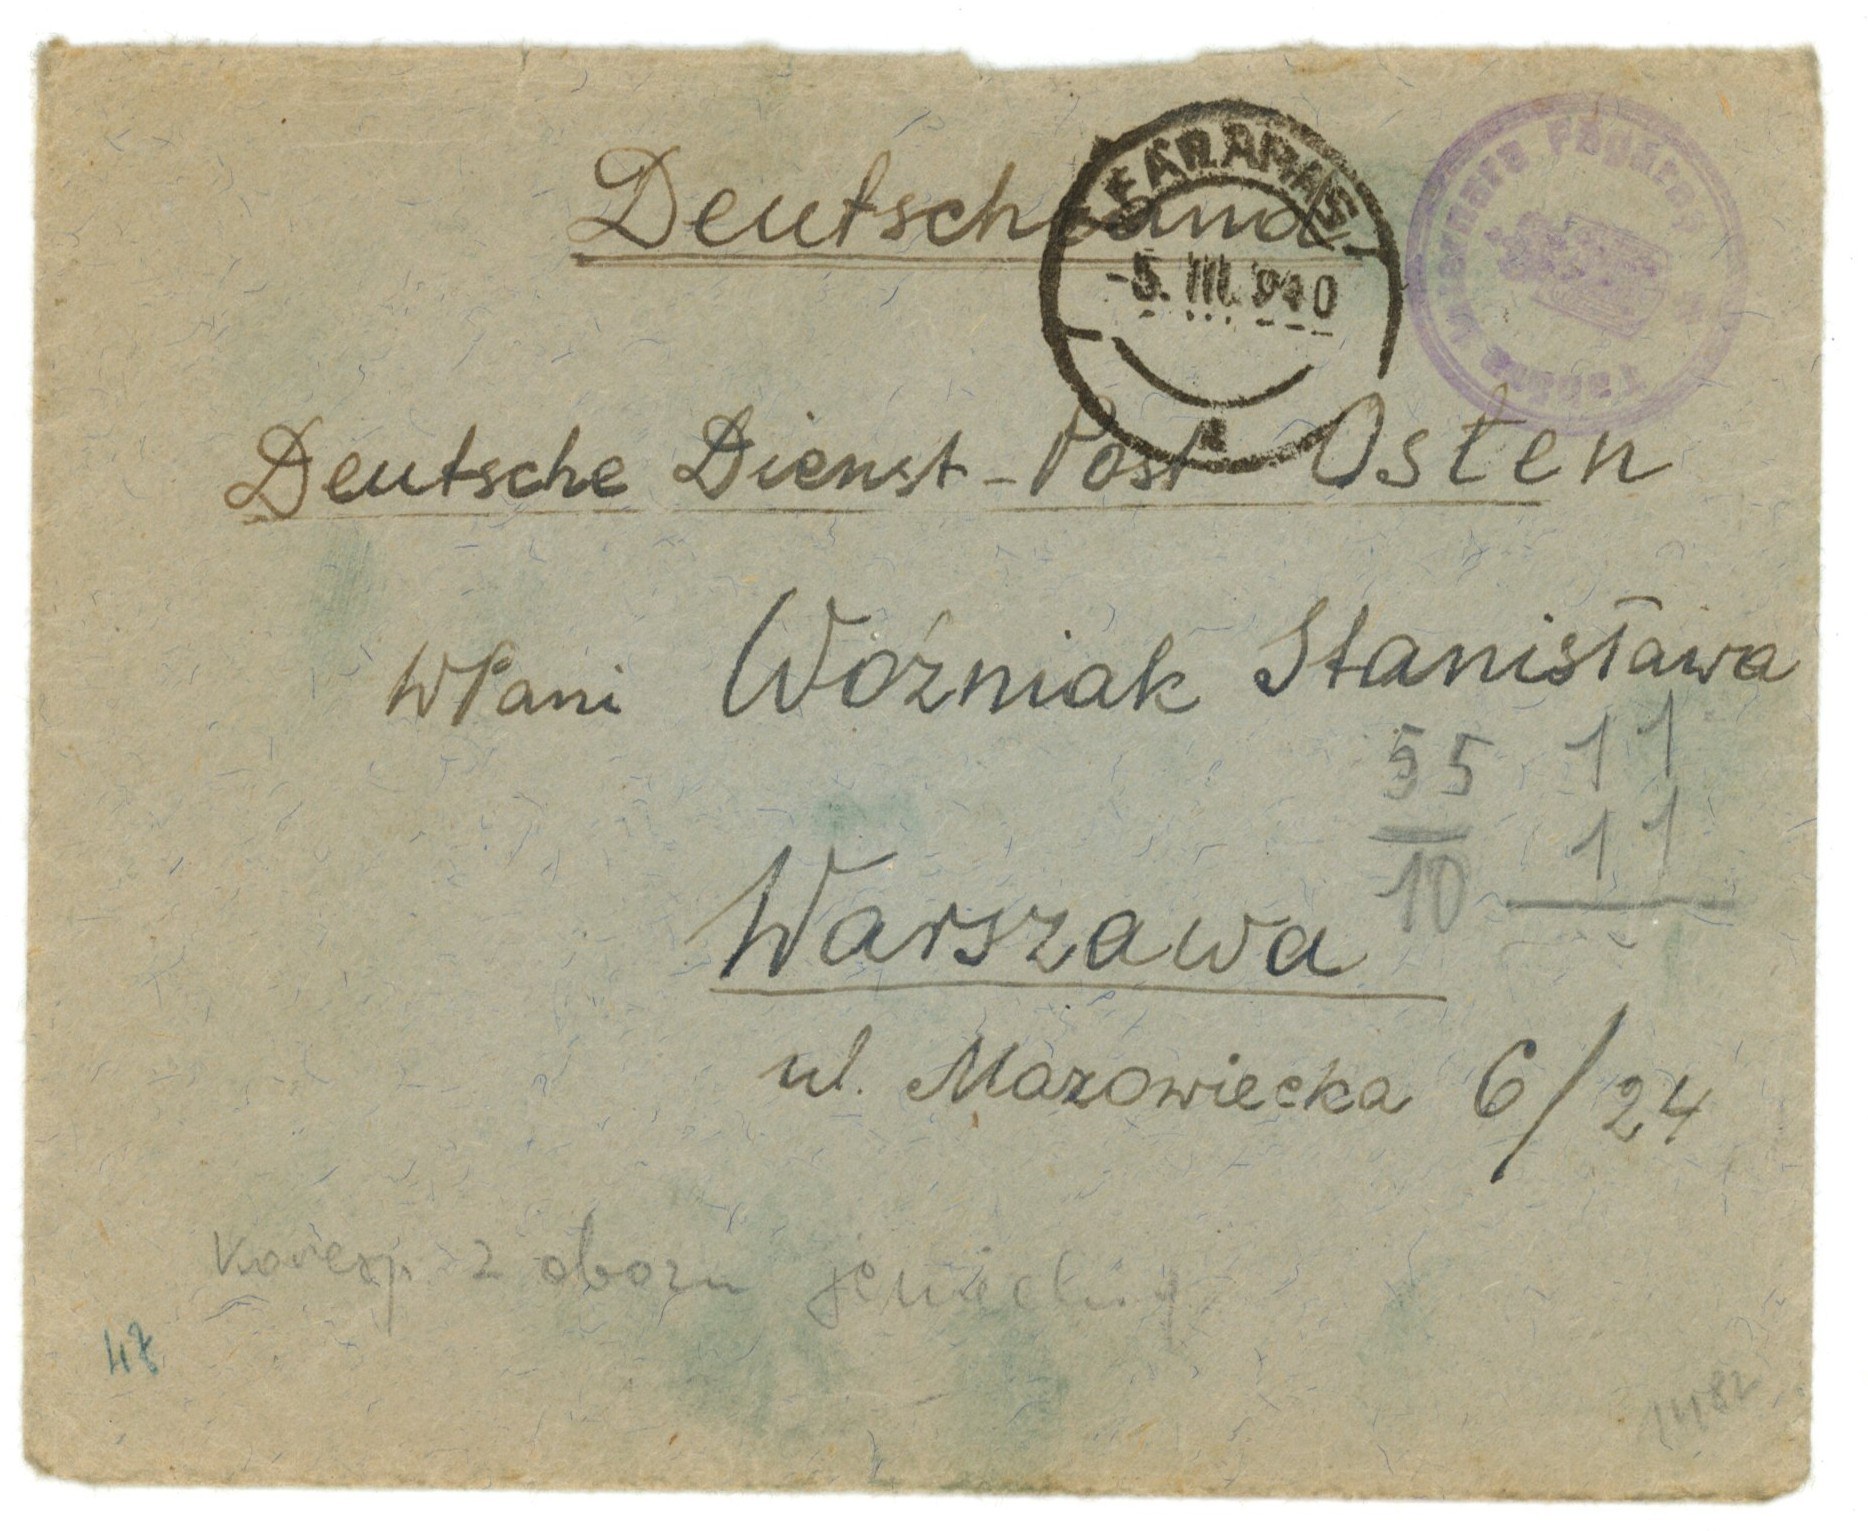 Deutschland
FAGARAS
-5. III. 940
Internare Făgăraş
Deutsche Dienst-Post Osten
WPani Woźniak Stanisława
55 11
10 11
Warszawa
ul. Mazowiecka 6/24
Koresp z obozu
47